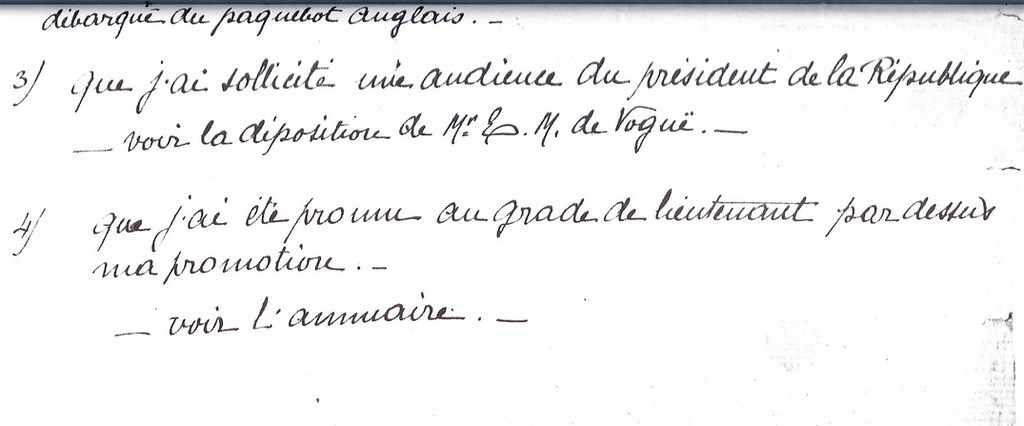 débarqué du paquebot anglais. _
3) que j'ai sollicité une audience du président de la République
_ voir la déposition de Mr. E. M. de Vogüé. _
4) que j'ai été promu au grade de lieutenant par dessus
ma promotion. _
_ voir l'annuaire. _